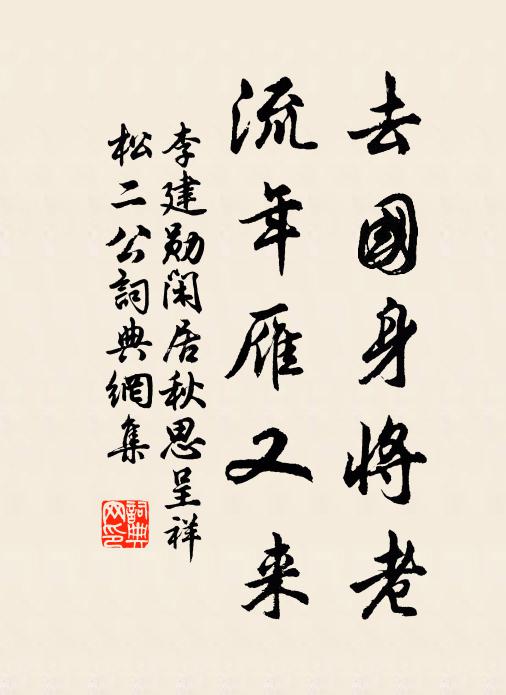 去國身將老
流年雁又来
李建勋闲居秋思呈祥
松二公詞典網集
詞典网印